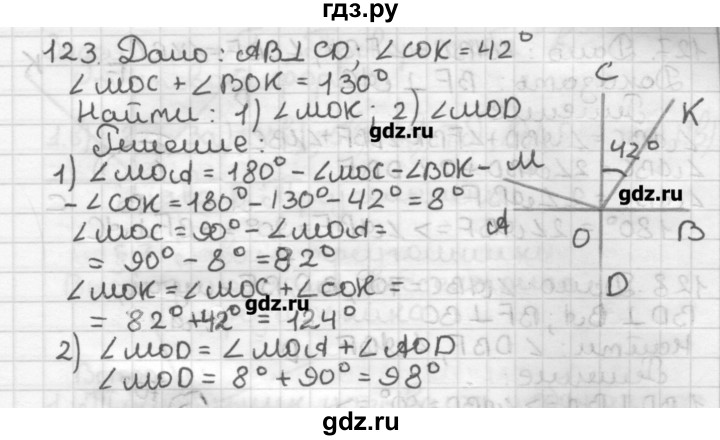 гдз.ру
123. Дано: AB⊥CD; ∠COK = 42°
∠MOC + ∠BOK = 130°
Найти: 1) ∠MOK; 2) ∠MOD
gdz.ru
Решение:
1) ∠MOA = 180° - ∠MOC - ∠BOK -
- ∠COK = 180° - 130° - 42° = 8°
∠MOC = 90° - ∠MOA =
= 90° - 8° = 82°
∠MOK = ∠MOC + ∠COK =
gdz.ru
= 82° + 42° = 124°
2) ∠MOD = ∠MOA + ∠AOD
∠MOD = 8° + 90° = 98°
C
K
42°
M
gdz.ru
A
O
B
D
gdz.ru